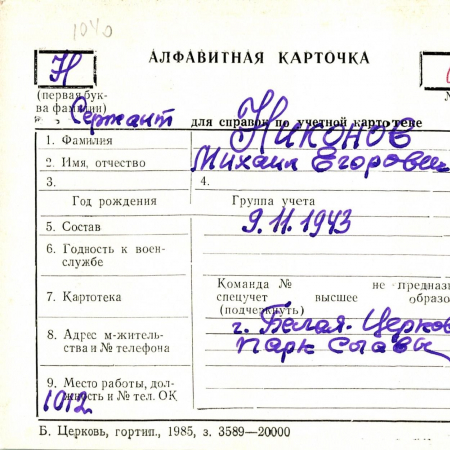 1040
АЛФАВИТНАЯ КАРТОЧКА
Н
(первая бук-
ва фамилии)
Сержант
для справок по учетной картотеке
1. Фамилия
Никонов
2. Имя, отчество
Михаил Егорович
3.
4.
Год рождения
Группа учета
5. Состав
9.11.1943
6. Годность к воен-
службе
7. Картотека
Команда № не предназ
спецучет высшее образо
(подчеркнуть)
8. Адрес м-житель-
ства и № телефона
г. Белая-Церковь
Парк Славы
9. Место работы, дол-
жность и № тел. ОК
1012
Б. Церковь, гортип., 1985, з. 3589—20000